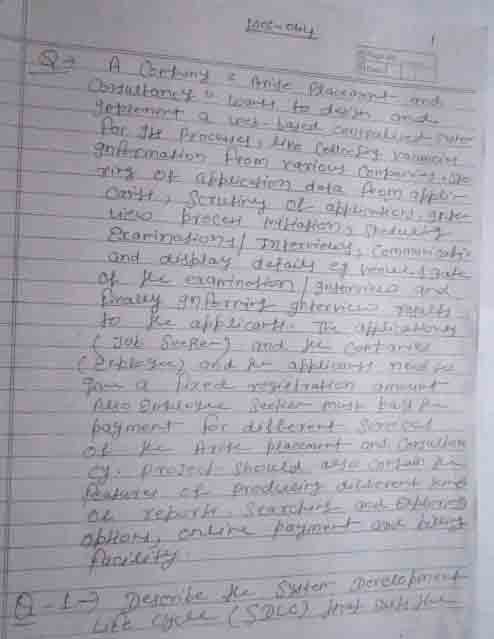 1
Q → A Company : Arite Placement and
Consultancy : wants to design and
implement a web-based centralised system
for the processes, like Collecting vacancies
information from various Companies, sto-
ring of application data from appli-
cants, Scrutiny of applications, inter-
view process initiation,
Examinations / Interviews, Communication
and display details of venue & date
of the examination / interview and
finally informing interview results
to the applicants. The applications
(Job Seeker) and the Companies
(Employee) and the applicants need to
give a fixed registration amount
Also Employee Seeker must pay the
payment for different Services
of the Arite placement and Consultan
cy. Project should also contain the
features of producing different kind
of reports, Searching and
options, online payment and billing
facility.
Q - 1 → Describe the System Development
Life Cycle (SDLC) that suits the